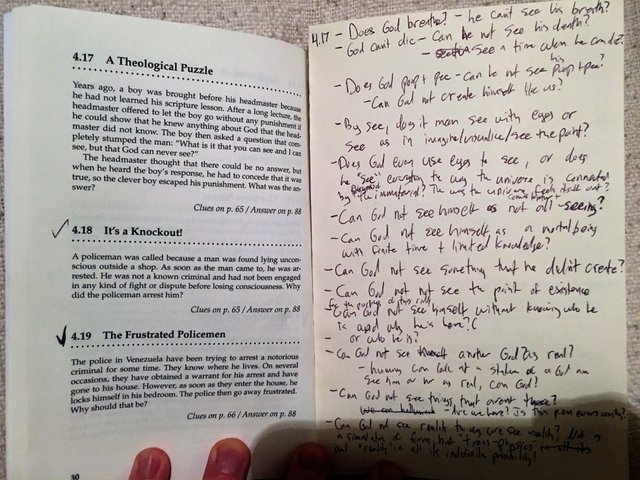 4.17 A Theological Puzzle
Years ago, a boy was brought before his headmaster because
he had not learned his scripture lesson. After a long lecture, the
headmaster offered to let the boy go without any punishment if
he could show that he knew anything about God that the head-
master did not know. The boy then asked a question that com-
pletely stumped the man: "What is it that you can see and I can
see, but that God can never see?"
The headmaster thought that there could be no answer, but
when he heard the boy's response, he had to concede that it was
true, so the clever boy escaped his punishment. What was the an-
swer?
Clues on p. 65 / Answer on p. 88
4.18 It's a Knockout!
A policeman was called because a man was found lying uncon-
scious outside a shop. As soon as the man came to, he was ar-
rested. He was not a known criminal and had not been engaged
in any kind of fight or dispute before losing consciousness. Why
did the policeman arrest him?
Clues on p. 65 / Answer on p. 88
4.19 The Frustrated Policemen
The police in Venezuela have been trying to arrest a notorious
criminal for some time. They know where he lives. On several
occasions, they have obtained a warrant for his arrest and have
gone to his house. However, as soon as they enter the house, he
locks himself in his bedroom. The police then go away frustrated.
Why should that be?
Clues on p. 66 / Answer on p. 88
30
4.17 - Does God breathe? - he can't see his breath?
- God can't die - Can he not see his death?
- see a time when he can die?
- Does God poop + pee - Can he not see his poop + pee?
- Can God not create himself like us?
- By see, does it mean see with eyes or
see as in imagine/visualize/see the point?
- Does God even use eyes to see, or does
he "see" everything the way the universe is connected
by the immaterial? The way the universe feels itself out?
- Can God not see himself as not all-seeing?
- Can God not see himself as a mortal being
with finite time + limited knowledge?
- Can God not see something that he didn't create?
- Can God not not see the point of existence
for the purpose of this
- Can God not see himself without knowing who he
is and why he's here?
- or who he is?
- Can God not see another God? as real?
- humans can look at a statue of a God and
see him or her as real, can God?
- Can God not see things that aren't there?
- Are we here? Is this
- Can God not see reality the way we see reality?
a simulation of forms, but
and "reality" in all its indefinite possibility!